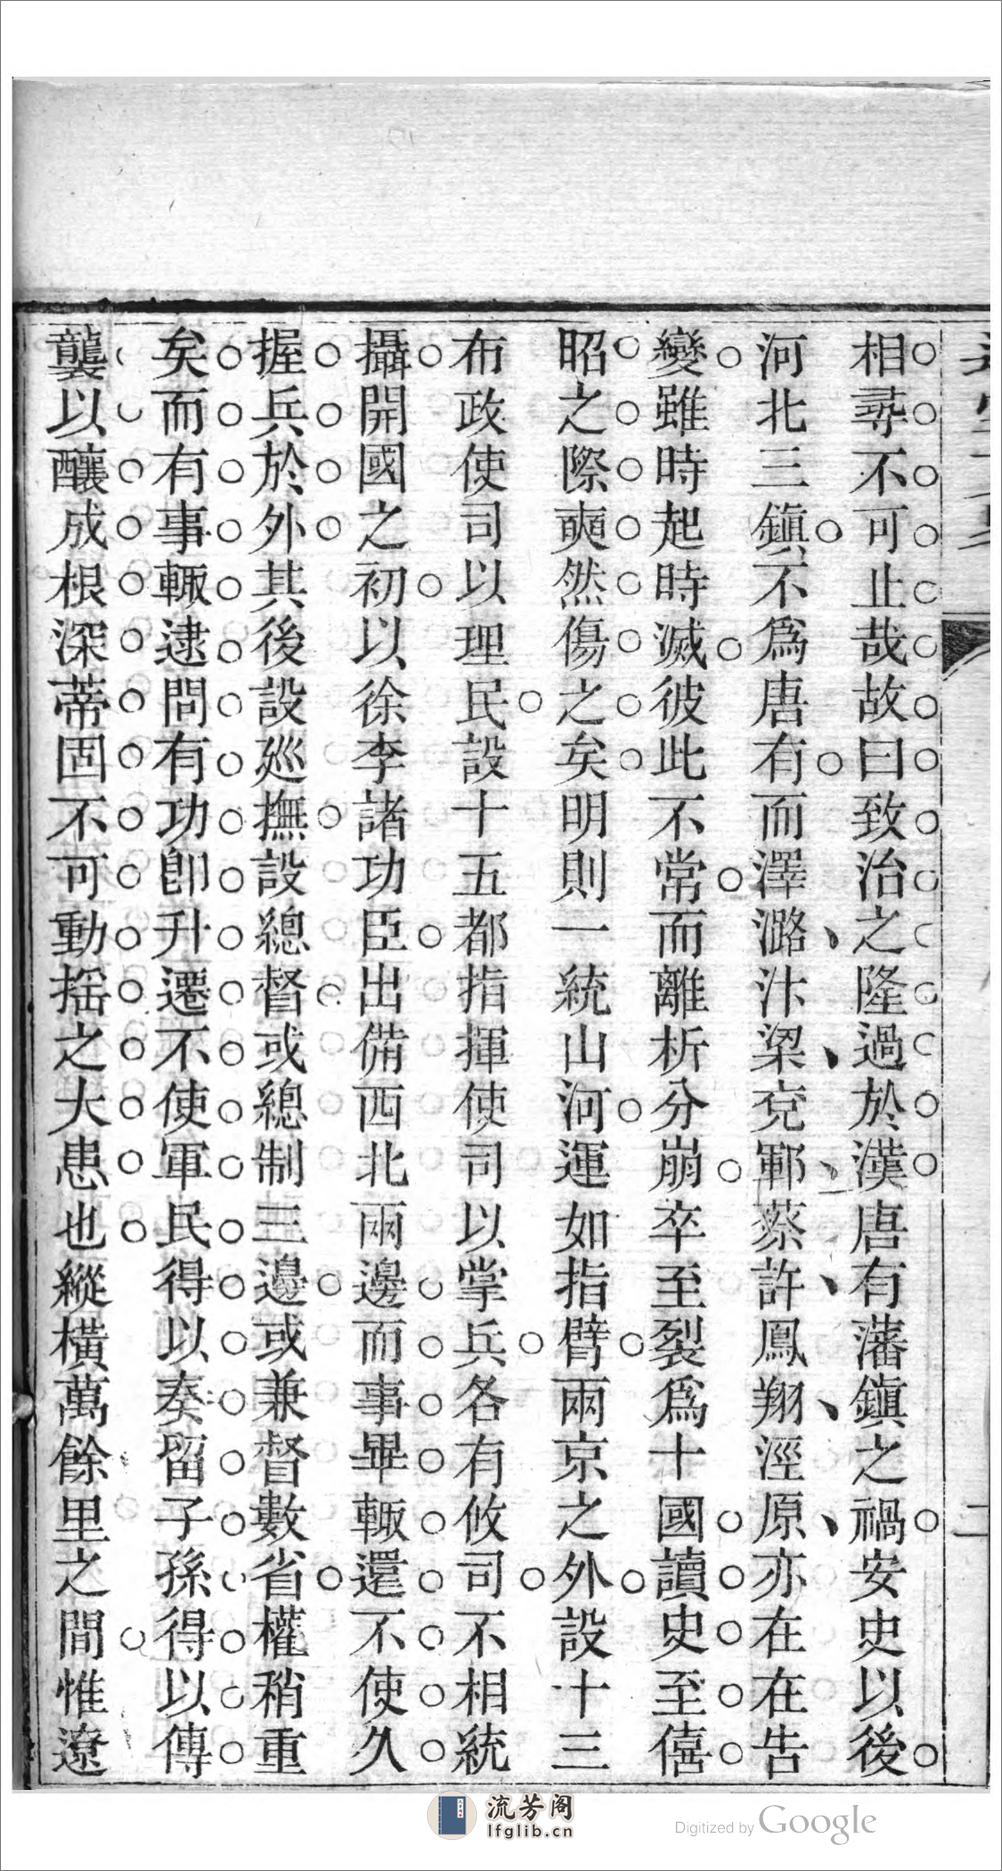 相尋不可止哉故曰致治之隆過於漢唐有藩鎮之禍安史以後
河北三鎮不為唐有而澤潞汴梁兗鄆蔡許鳳翔涇原亦在在告
變雖時起時滅彼此不常而離析分崩卒至裂為十國讀史至僖
昭之際奭然傷之矣明則一統山河運如指臂兩京之外設十三
布政使司以理民設十五都指揮使司以掌兵各有攸司不相統
攝開國之初以徐李諸功臣出備西北兩邊而事畢輒還不使久
握兵於外其後設廵撫設總督或總制三邊或兼督數省權稍重
矣而有事輒逮問有功卽升遷不使軍民得以奏留子孫得以傳
襲以釀成根深蒂固不可動揺之大患也縱橫萬餘里之間惟遼
流芳阁
lfglib.cn
Digitized by Google